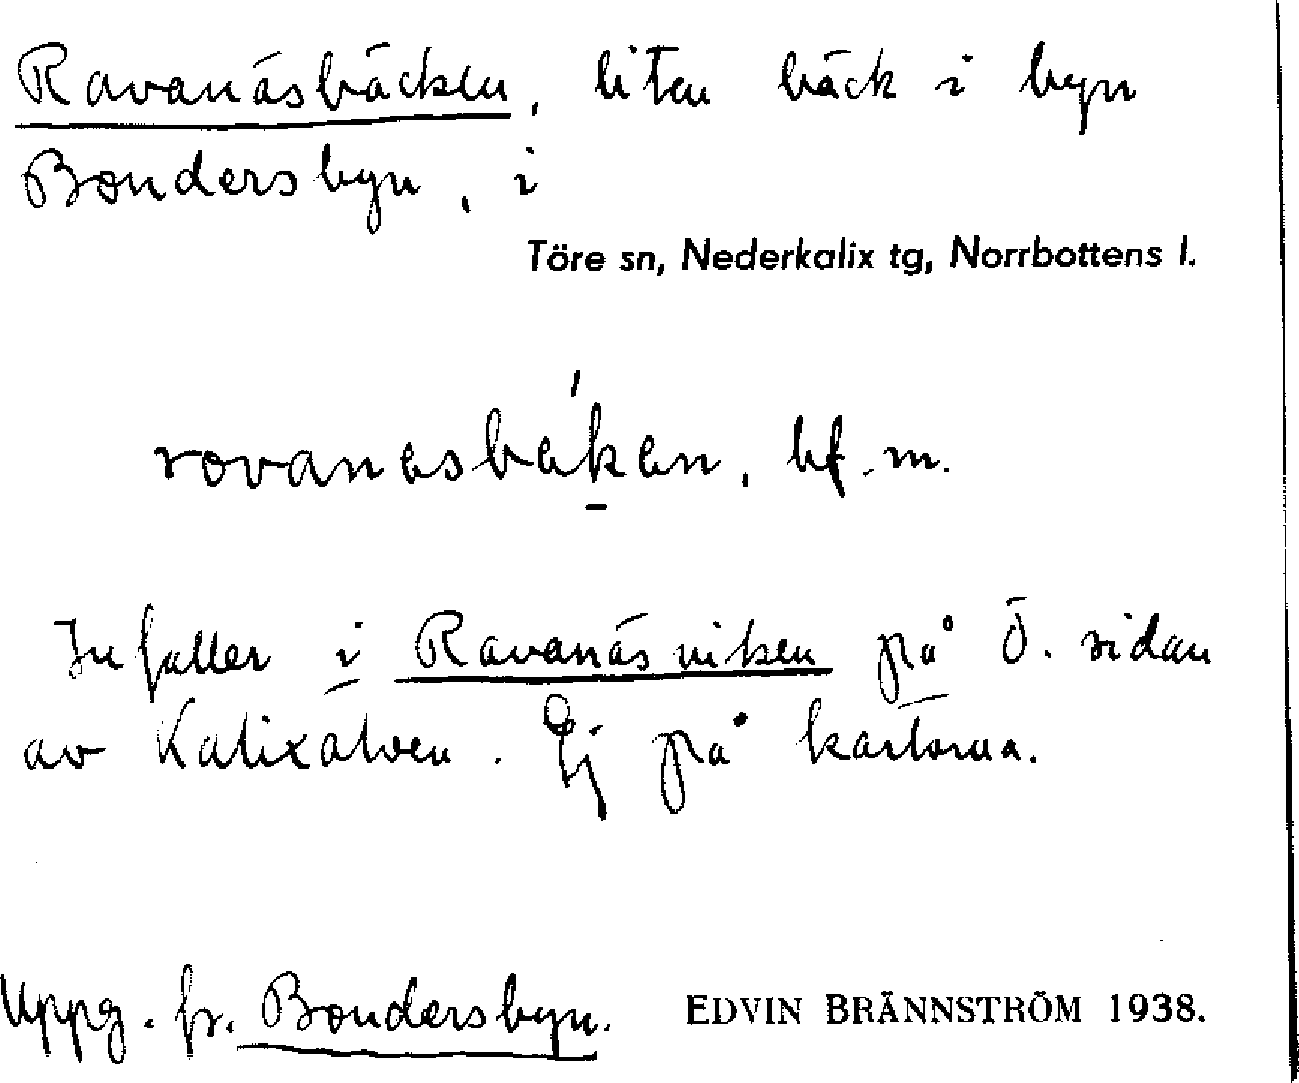 Ravanäsbäcken, liten bäck i byn
Bondersbyn, i
Töre sn, Nederkalix tg, Norrbottens l.
rovanesbeken, bf. m.
Infaller i Ravanäsviken på Ö. sidan
av Kalixälven. Ej på kartorna.
Uppg. fr. Bondersbyn. EDVIN BRÄNNSTRÖM 1938.